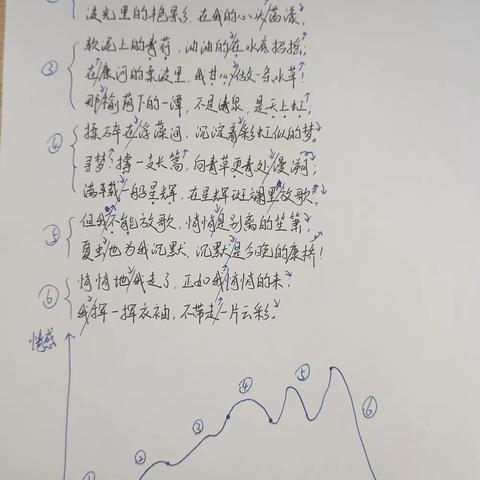 波光里的艳影，在我的心头荡漾。
③ 软泥上的青荇，油油的在水底招摇；
在康河的柔波里，我甘心做一条水草！
那榆荫下的一潭，不是清泉，是天上虹；
④ 揉碎在浮藻间，沉淀着彩虹似的梦。
寻梦？撑一支长篙，向青草更青处漫溯；
满载一船星辉，在星辉斑斓里放歌。
⑤ 但我不能放歌，悄悄是别离的笙箫；
夏虫也为我沉默，沉默是今晚的康桥！
⑥ 悄悄地我走了，正如我悄悄的来；
我挥一挥衣袖，不带走一片云彩。
情感
① ② ③ ④ ⑤ ⑥